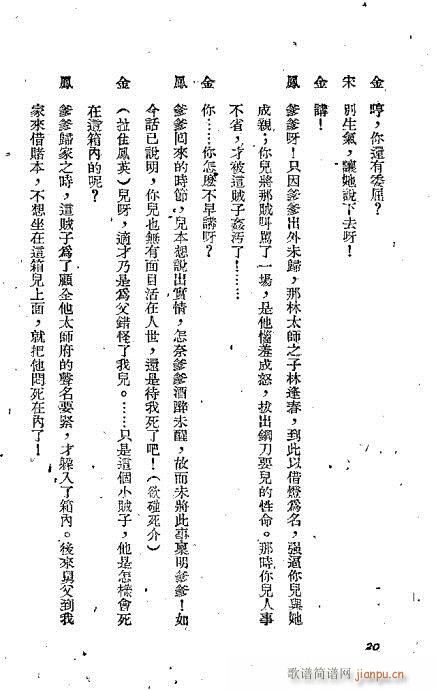 金　哼，你還有委屈？
宋　別生氣，讓她說下去呀！
金　講！
鳳　爹爹呀！只因爹爹出外未歸，那林太師之子林逢春，到此以借燈爲名，強逼你兒與她
成親；你兒將那賊叫罵了一場，是他惱羞成怒，拔出鋼刀要兒的性命。那時你兒人事
不省，才被這賊子姦汚了！……
金　你……你怎麼不早講呀？
鳳　爹爹囘來的時節，兒本想說出實情，怎奈爹爹酒醉未醒，故而未將此事禀明爹爹！如
今話已說明，你兒也無有面目活在人世，還是待我死了吧！（欲碰死介）
金　（拉住鳳英）兒呀，適才乃是爲父錯怪了我兒。……只是這個小賊子，他是怎樣會死
在這箱內的呢？
鳳　爹爹歸家之時，這賊子爲了顧全他太師府的聲名要緊，才躲入了箱內。後來舅父到我
家來借賭本，不想坐在這箱兒上面，就把他悶死在內了！
20
歌谱简谱网
jianpu.cn